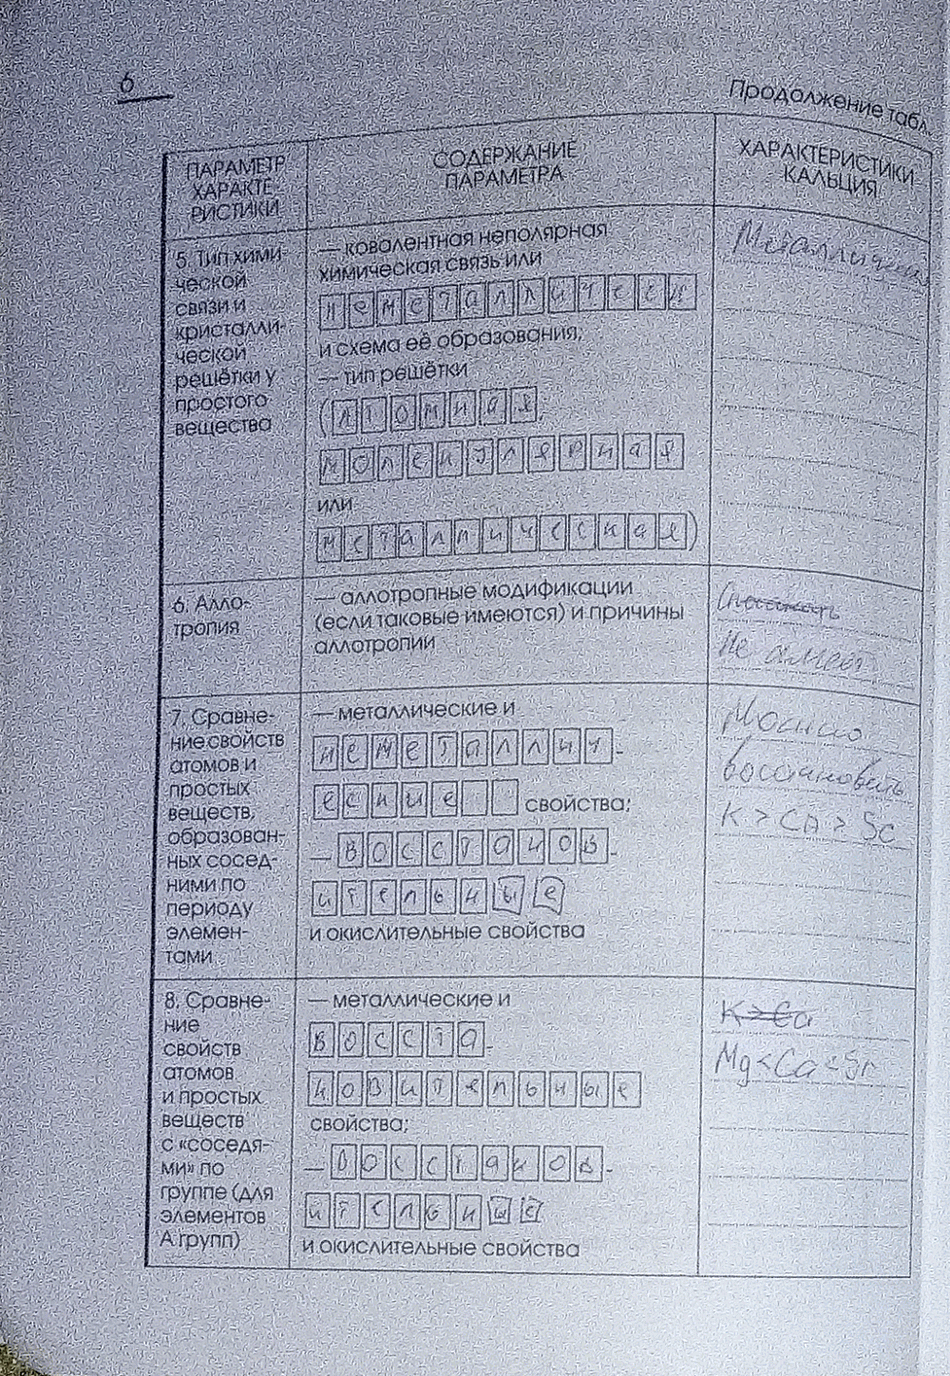 6
Продолжение табл.
ПАРАМЕТР
ХАРАКТЕ
РИСТИКИ
СОДЕРЖАНИЕ
ПАРАМЕТРА
ХАРАКТЕРИСТИКИ
КАЛЬЦИЯ
5. Тип хими-
ческой
связи и
кристалли-
ческой
решётки у
простого
вещества
— ковалентная неполярная
химическая связь или
неметаллическ
и схема её образования;
— тип решётки
(атомная,
молекулярная
или
металлическая)
6. Алло-
тропия
— аллотропные модификации
(если таковые имеются) и причины
аллотропии
Не имеет
7. Сравне-
ние свойств
атомов и
простых
веществ,
образован-
ных сосед-
ними по
периоду
элемен-
тами
— металлические и
неметаллич-
еские свойства;
— восстанов-
ительные
и окислительные свойства
K > Ca > Sc
8. Сравне-
ние
свойств
атомов
и простых
веществ
с «соседя-
ми» по
группе (для
элементов
А групп)
— металлические и
восста-
новительные
свойства;
— восстанов-
ительные
и окислительные свойства
K > Ca
Mg < Ca < Sr